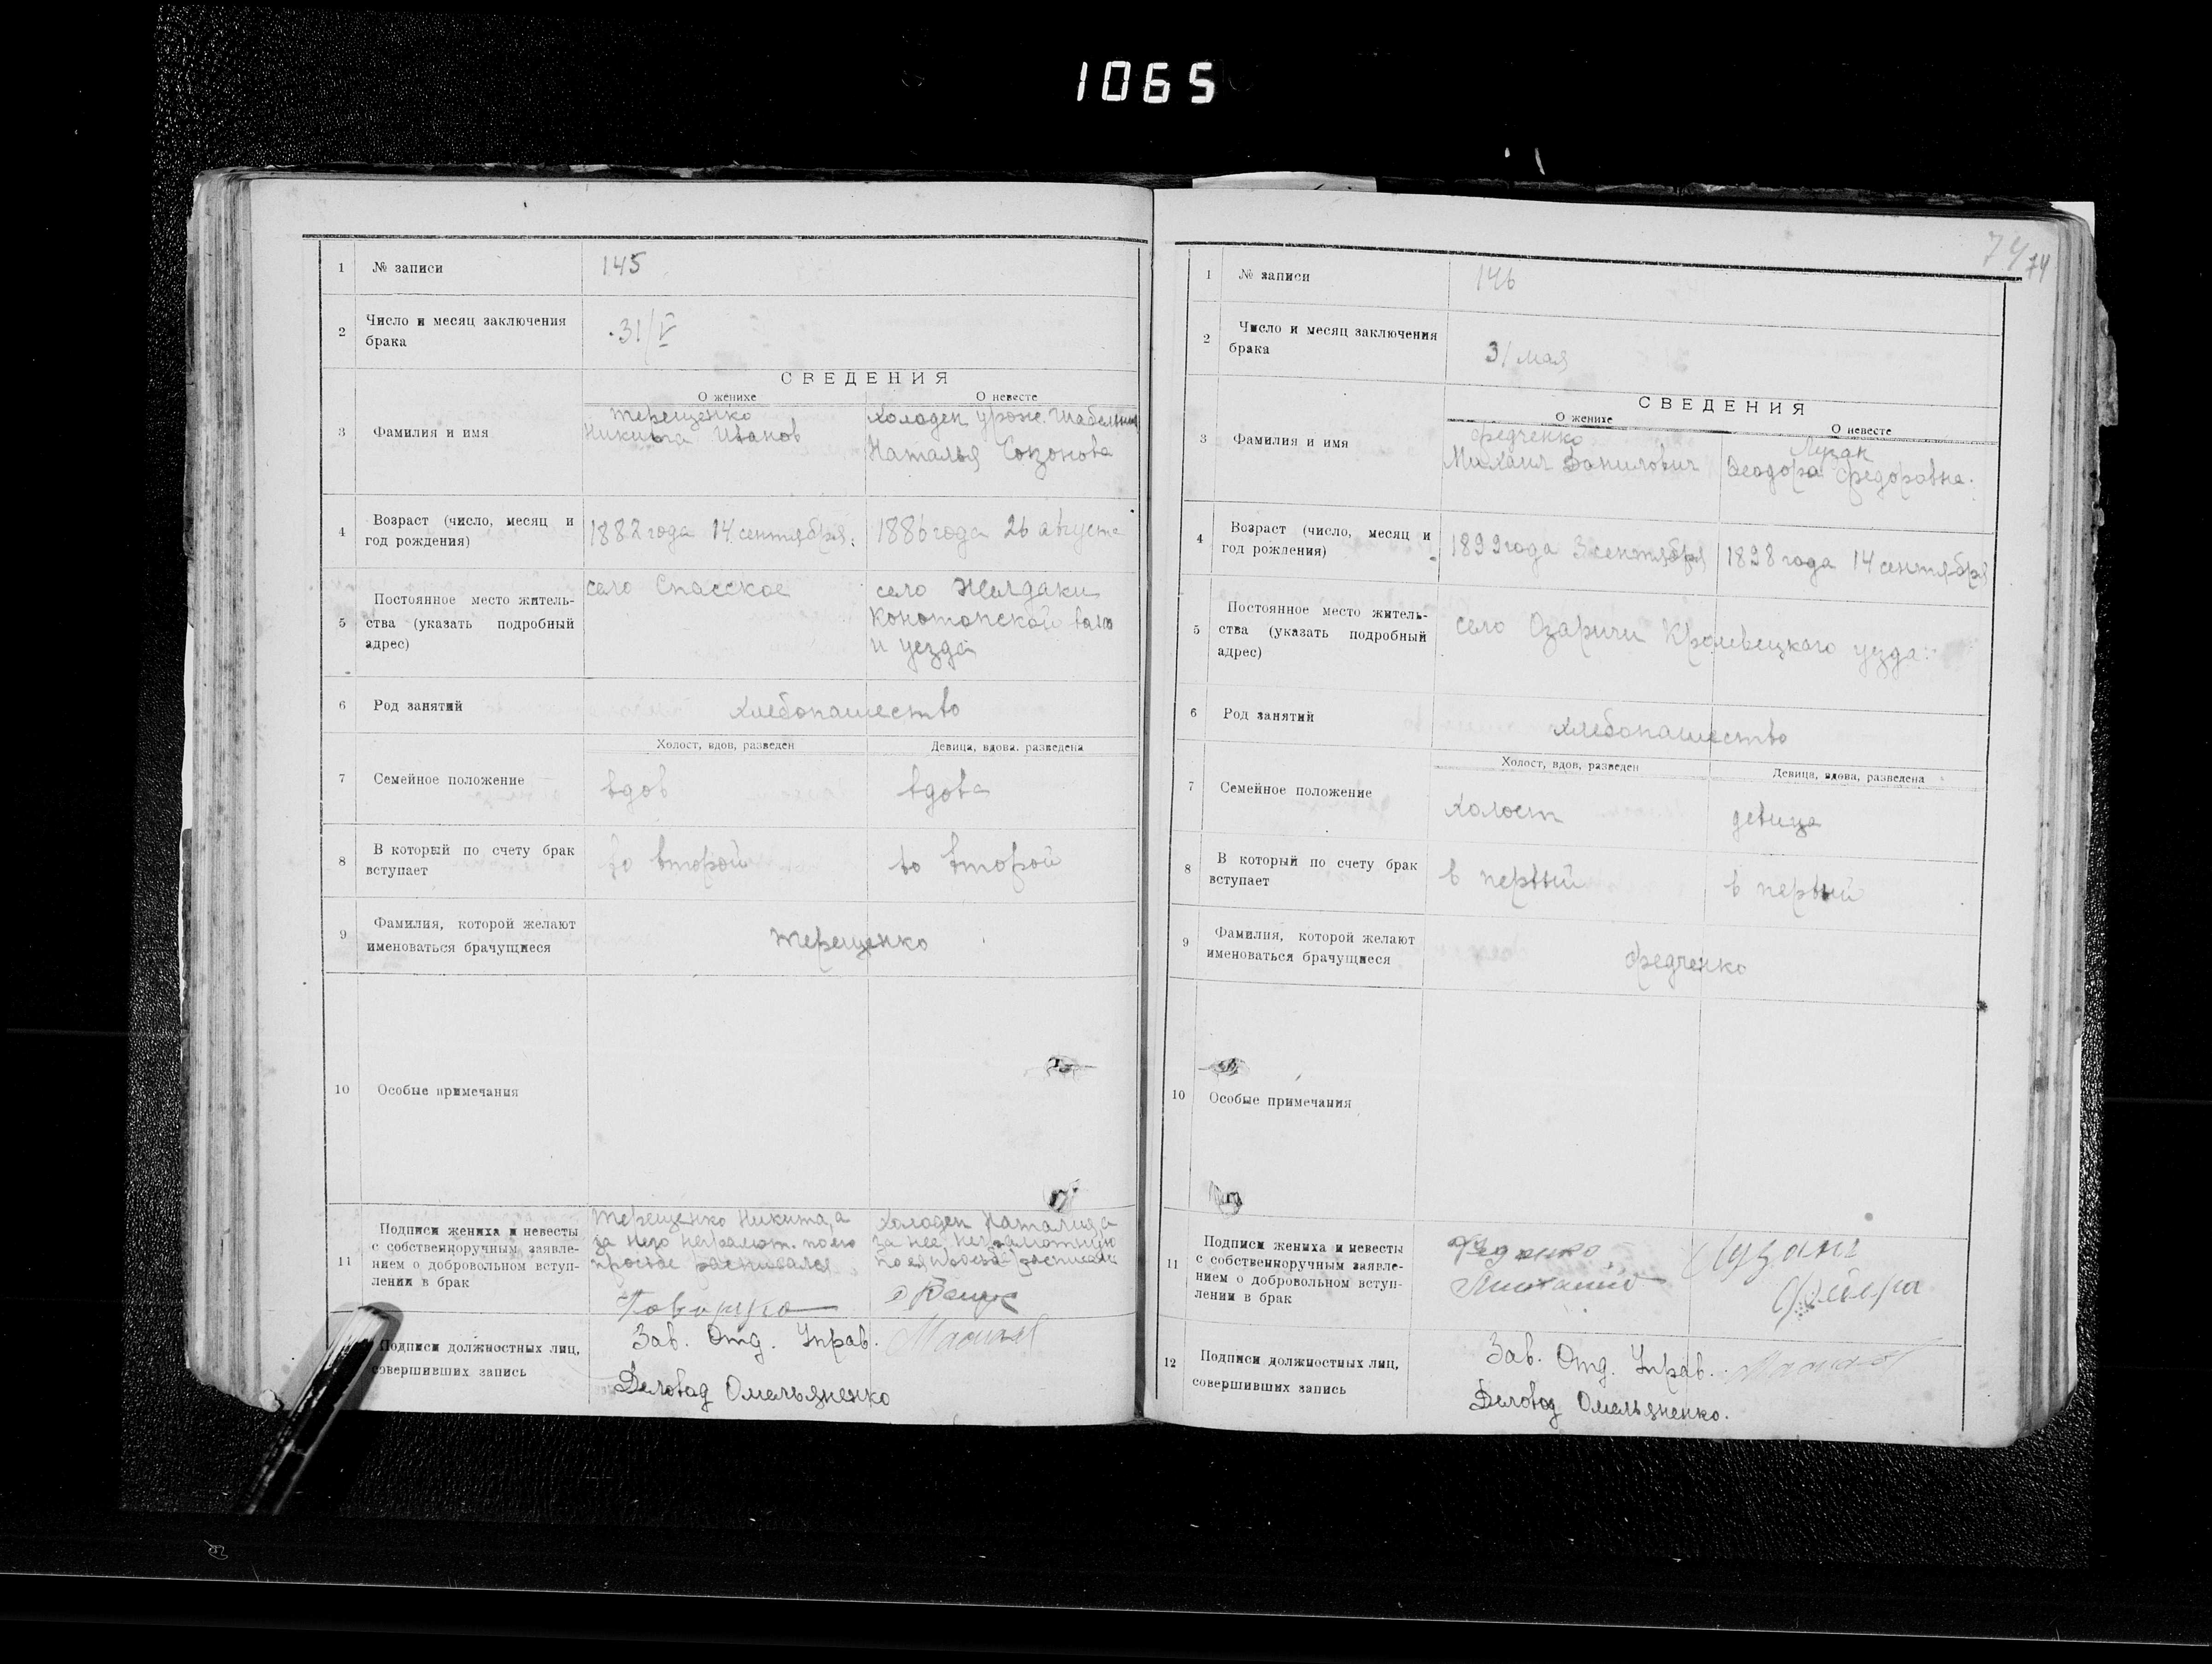 1065
1 № записи 145
2 Число и месяц заключения брака 31/V
СВЕДЕНИЯ
О женихе О невесте
3 Фамилия и имя
Терещенко
Никита Иванов
Холоден урожд. Шабельник
Наталья Созонова
4 Возраст (число, месяц и год рождения)
1882 года 14 сентября. 1886 года 26 августа
5 Постоянное место жительства (указать подробный адрес)
село Спасское
село Желдаки
Конотопской вол.
и уезда
6 Род занятий хлебопашество
Холост, вдов, разведен Девица, вдова, разведена
7 Семейное положение вдов вдова
8 В который по счету брак вступает во второй во второй
9 Фамилия, которой желают именоваться брачущиеся Терещенко
10 Особые примечания
11 Подписи жениха и невесты с собственноручным заявлением о добровольном вступлении в брак
Терещенко Никита, а
за него неграмот. по его
просьбе расписался
Холоден Наталия а
за нее неграмотную
по ея просьбе расписался
Подписи должностных лиц, совершивших запись
Зав. Отд. Управ.
Деловод Омельяненко
74 74
1 № записи 146
2 Число и месяц заключения брака 31 мая
СВЕДЕНИЯ
О женихе О невесте
3 Фамилия и имя
Федченко
Михаил Данилович
Лузан
Феодора Федоровна.
4 Возраст (число, месяц и год рождения)
1899 года 3 сентября 1898 года 14 сентября
5 Постоянное место жительства (указать подробный адрес)
село Озаричи Кролевецкаго уезда.
6 Род занятий хлебопашество
Холост, вдов, разведен Девица, вдова, разведена
7 Семейное положение холост девица
8 В который по счету брак вступает в первый в первый
9 Фамилия, которой желают именоваться брачущиеся Федченко
10 Особые примечания
11 Подписи жениха и невесты с собственноручным заявлением о добровольном вступлении в брак
12 Подписи должностных лиц, совершивших запись
Зав. Отд. Управ.
Деловод Омельяненко.